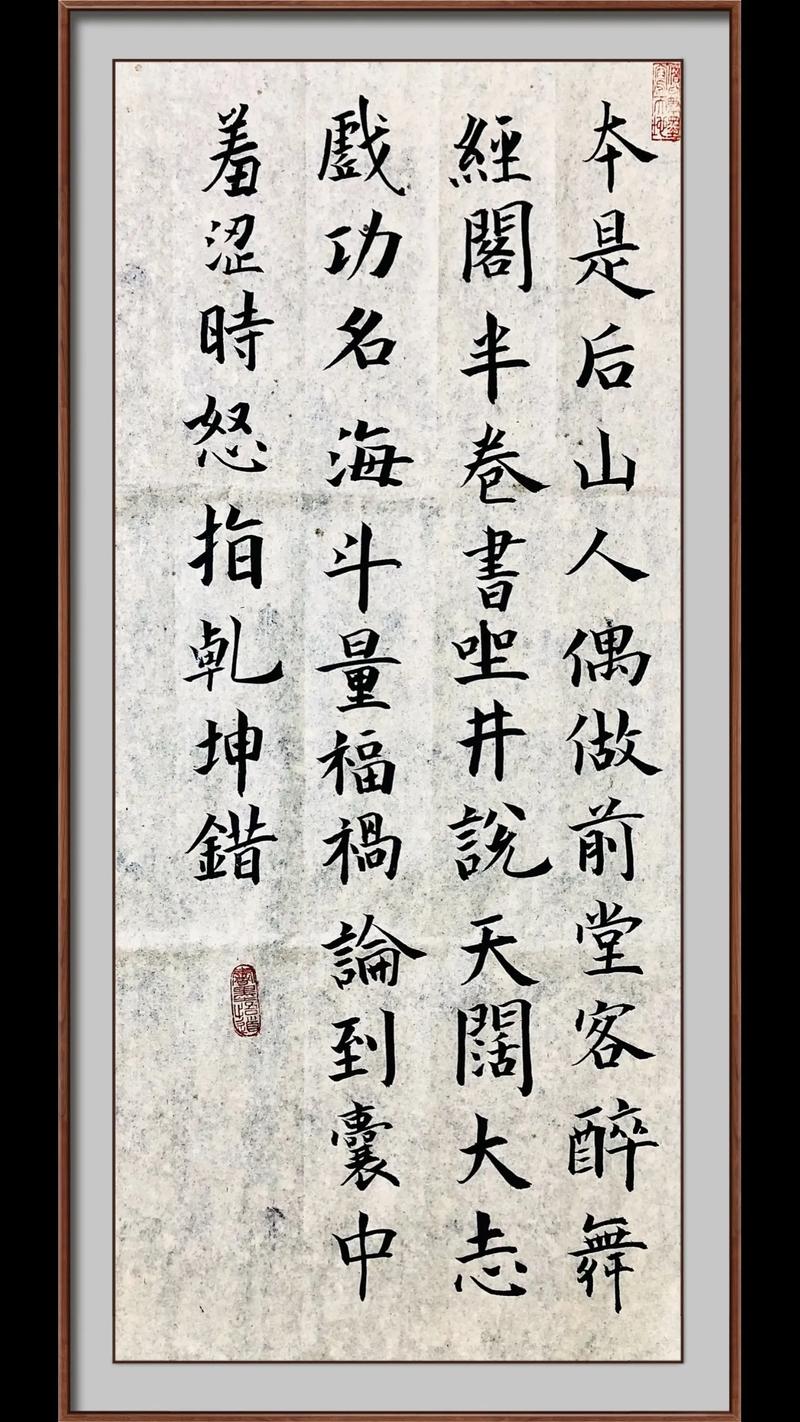 本是后山人偶做前堂客醉舞
經閣半卷書坐井說天闊大志
戲功名海斗量福禍論到囊中
羞澀時怒指乾坤錯